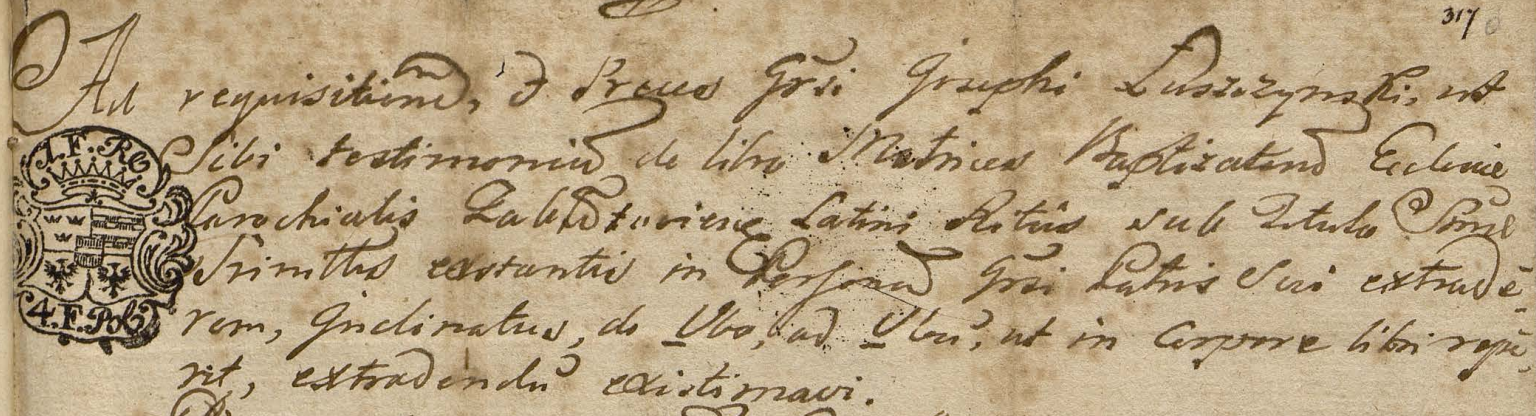 317
Ad requisitionē, & Preces Gr̄si Josephi Łuszczynski, ut
Sibi testimoniū de libro Metrices Baptizatorū Ecclesiæ
Parochialis Latini Ritûs sub Titulo
Trinittis extantis in Personā Gr̄si Patris Sui extradē-
rem, Inclinatus, de Vbo, ad Vbū, ut in Corpore libri repe-
rit, extradendū existimavi.
1. F. RE
4. F. Pol